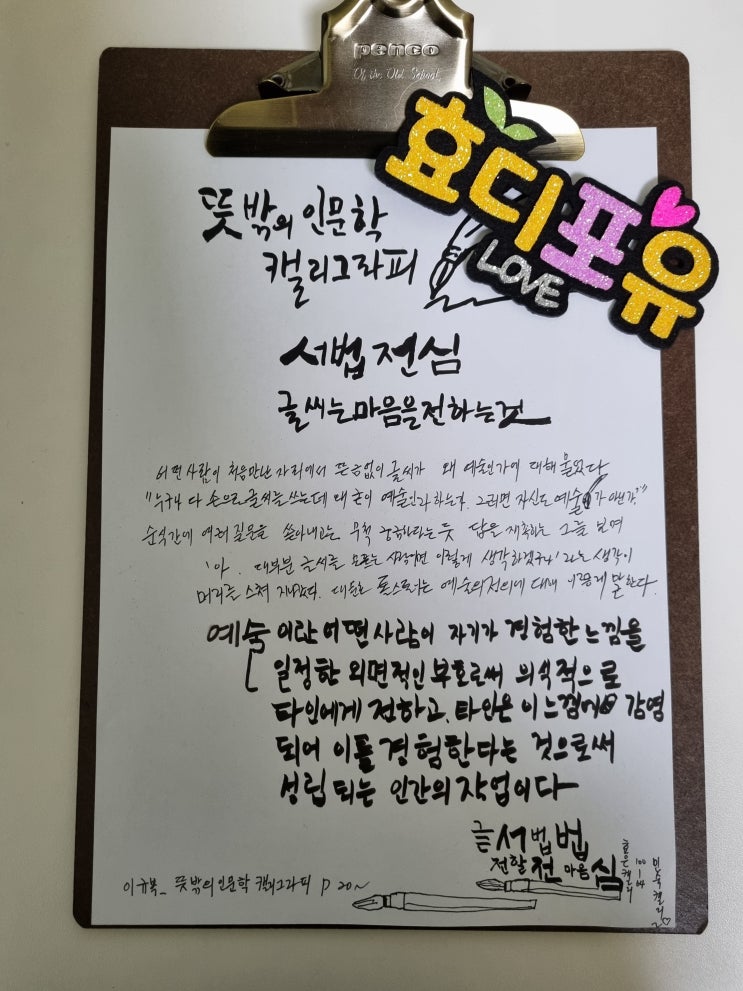 penco
Of the Old School.
효디포유
LOVE
뜻밖의 인문학
캘리그라피
서법전심
글씨는마음을전하는것
어떤 사람이 처음만난 자리에서 뜬금없이 글씨가 왜 예술인가에 대해 물었다
"누구나 다 손으로 글씨를 쓰는데 왜 굳이 예술이라 하는가. 그러면 자신도 예술가가 아닌가?"
순식간에 여러 질문을 쏟아내고는 무척 궁금하다는 듯 답을 재촉하는 그를 보며
'아. 대부분 글씨를 모르는 사람이면 이렇게 생각하겠구나' 라는 생각이
머리를 스쳐 지나갔다. 대문호 톨스토이는 예술의정의에 대해 이렇게 말한다.
예술이란 어떤사람이 자기가 경험한 느낌을
일정한 외면적인 부호로써 의식적으로
타인에게 전하고, 타인은 이느낌에 감염
되어 이를 경험한다는 것으로써
성립되는 인간의작업이다
글 서 법 법
전할 전 마음 심
100-14
이규복_ 뜻밖의인문학 캘리그라피 p 20~